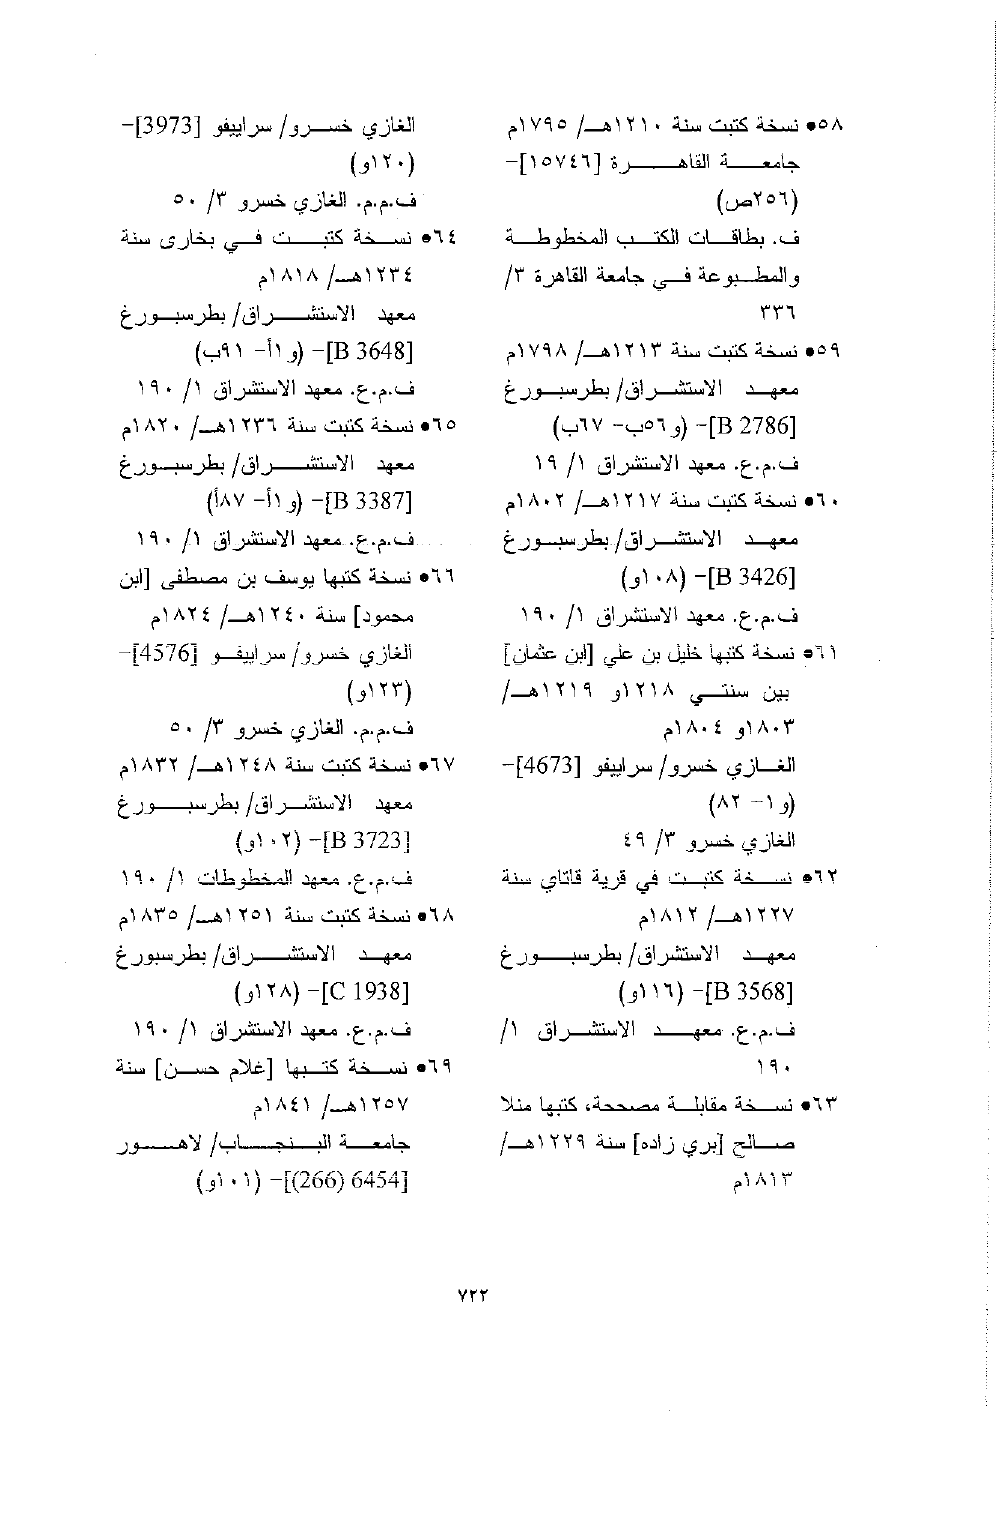 ٥٨• نسخة كتبت سنة ١٢١٠هـ/ ١٧٩٥م
جامعة القاهرة [١٥٧٤٦]-
(٢٥٦ص)
ف. بطاقات الكتب المخطوطة
والمطبوعة في جامعة القاهرة ٣/
٣٣٦
٥٩• نسخة كتبت سنة ١٢١٣هـ/ ١٧٩٨م
معهد الاستشراق/ بطرسبورغ
[B 2786]- (و٥٦ب- ٦٧ب)
ف.م.ع. معهد الاستشراق ١/ ١٩
٦٠• نسخة كتبت سنة ١٢١٧هـ/ ١٨٠٢م
معهد الاستشراق/ بطرسبورغ
[B 3426]- (١٠٨و)
ف.م.ع. معهد الاستشراق ١/ ١٩٠
٦١• نسخة كتبها خليل بن علي [ابن عثمان]
بين سنتي ١٢١٨و ١٢١٩هـ/
١٨٠٣و ١٨٠٤م
الغازي خسرو/ سراييفو [4673]-
(و١- ٨٢)
الغازي خسرو ٣/ ٤٩
٦٢• نسخة كتبت في قرية قاتاي سنة
١٢٢٧هـ/ ١٨١٢م
معهد الاستشراق/ بطرسبورغ
[B 3568]- (١١٦و)
ف.م.ع. معهد الاستشراق ١/
١٩٠
٦٣• نسخة مقابلة مصححة، كتبها منلا
صالح [بري زاده] سنة ١٢٢٩هـ/
١٨١٣م
الغازي خسرو/ سراييفو [3973]-
(١٢٠و)
ف.م.م. الغازي خسرو ٣/ ٥٠
٦٤• نسخة كتبت في بخارى سنة
١٢٣٤هـ/ ١٨١٨م
معهد الاستشراق/ بطرسبورغ
[B 3648]- (و١أ- ٩١ب)
ف.م.ع. معهد الاستشراق ١/ ١٩٠
٦٥• نسخة كتبت سنة ١٢٣٦هـ/ ١٨٢٠م
معهد الاستشراق/ بطرسبورغ
[B 3387]- (و١أ- ٨٧أ)
ف.م.ع. معهد الاستشراق ١/ ١٩٠
٦٦• نسخة كتبها يوسف بن مصطفى [ابن
محمود] سنة ١٢٤٠هـ/ ١٨٢٤م
الغازي خسرو/ سراييفو [4576]-
(١٢٣و)
ف.م.م. الغازي خسرو ٣/ ٥٠
٦٧• نسخة كتبت سنة ١٢٤٨هـ/ ١٨٣٢م
معهد الاستشراق/ بطرسبورغ
[B 3723]- (١٠٢و)
ف.م.ع. معهد المخطوطات ١/ ١٩٠
٦٨• نسخة كتبت سنة ١٢٥١هـ/ ١٨٣٥م
معهد الاستشراق/ بطرسبورغ
[C 1938]- (١٢٨و)
ف.م.ع. معهد الاستشراق ١/ ١٩٠
٦٩• نسخة كتبها [غلام حسن] سنة
١٢٥٧هـ/ ١٨٤١م
جامعة البنجاب/ لاهور
[6454 (266)]- (١٠١و)
٧٢٢